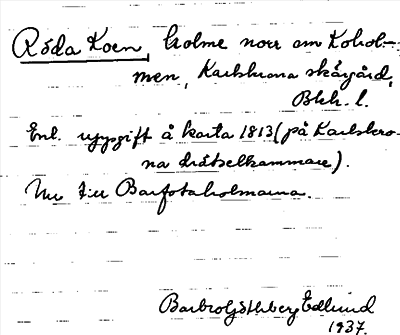 Röda Koen, holme norr om Koholmen,
men, Karlskrona skärgård,
Blek. l.
Enl. uppgift å karta 1813 (på Karlskro-
na drätselkammare).
Nu till Barfotaholmarna.
Barbro Göthberg Edlund
1937.